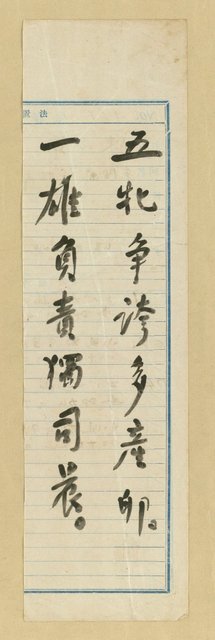 五牝爭誇多產卵。
一雄負責獨司晨。